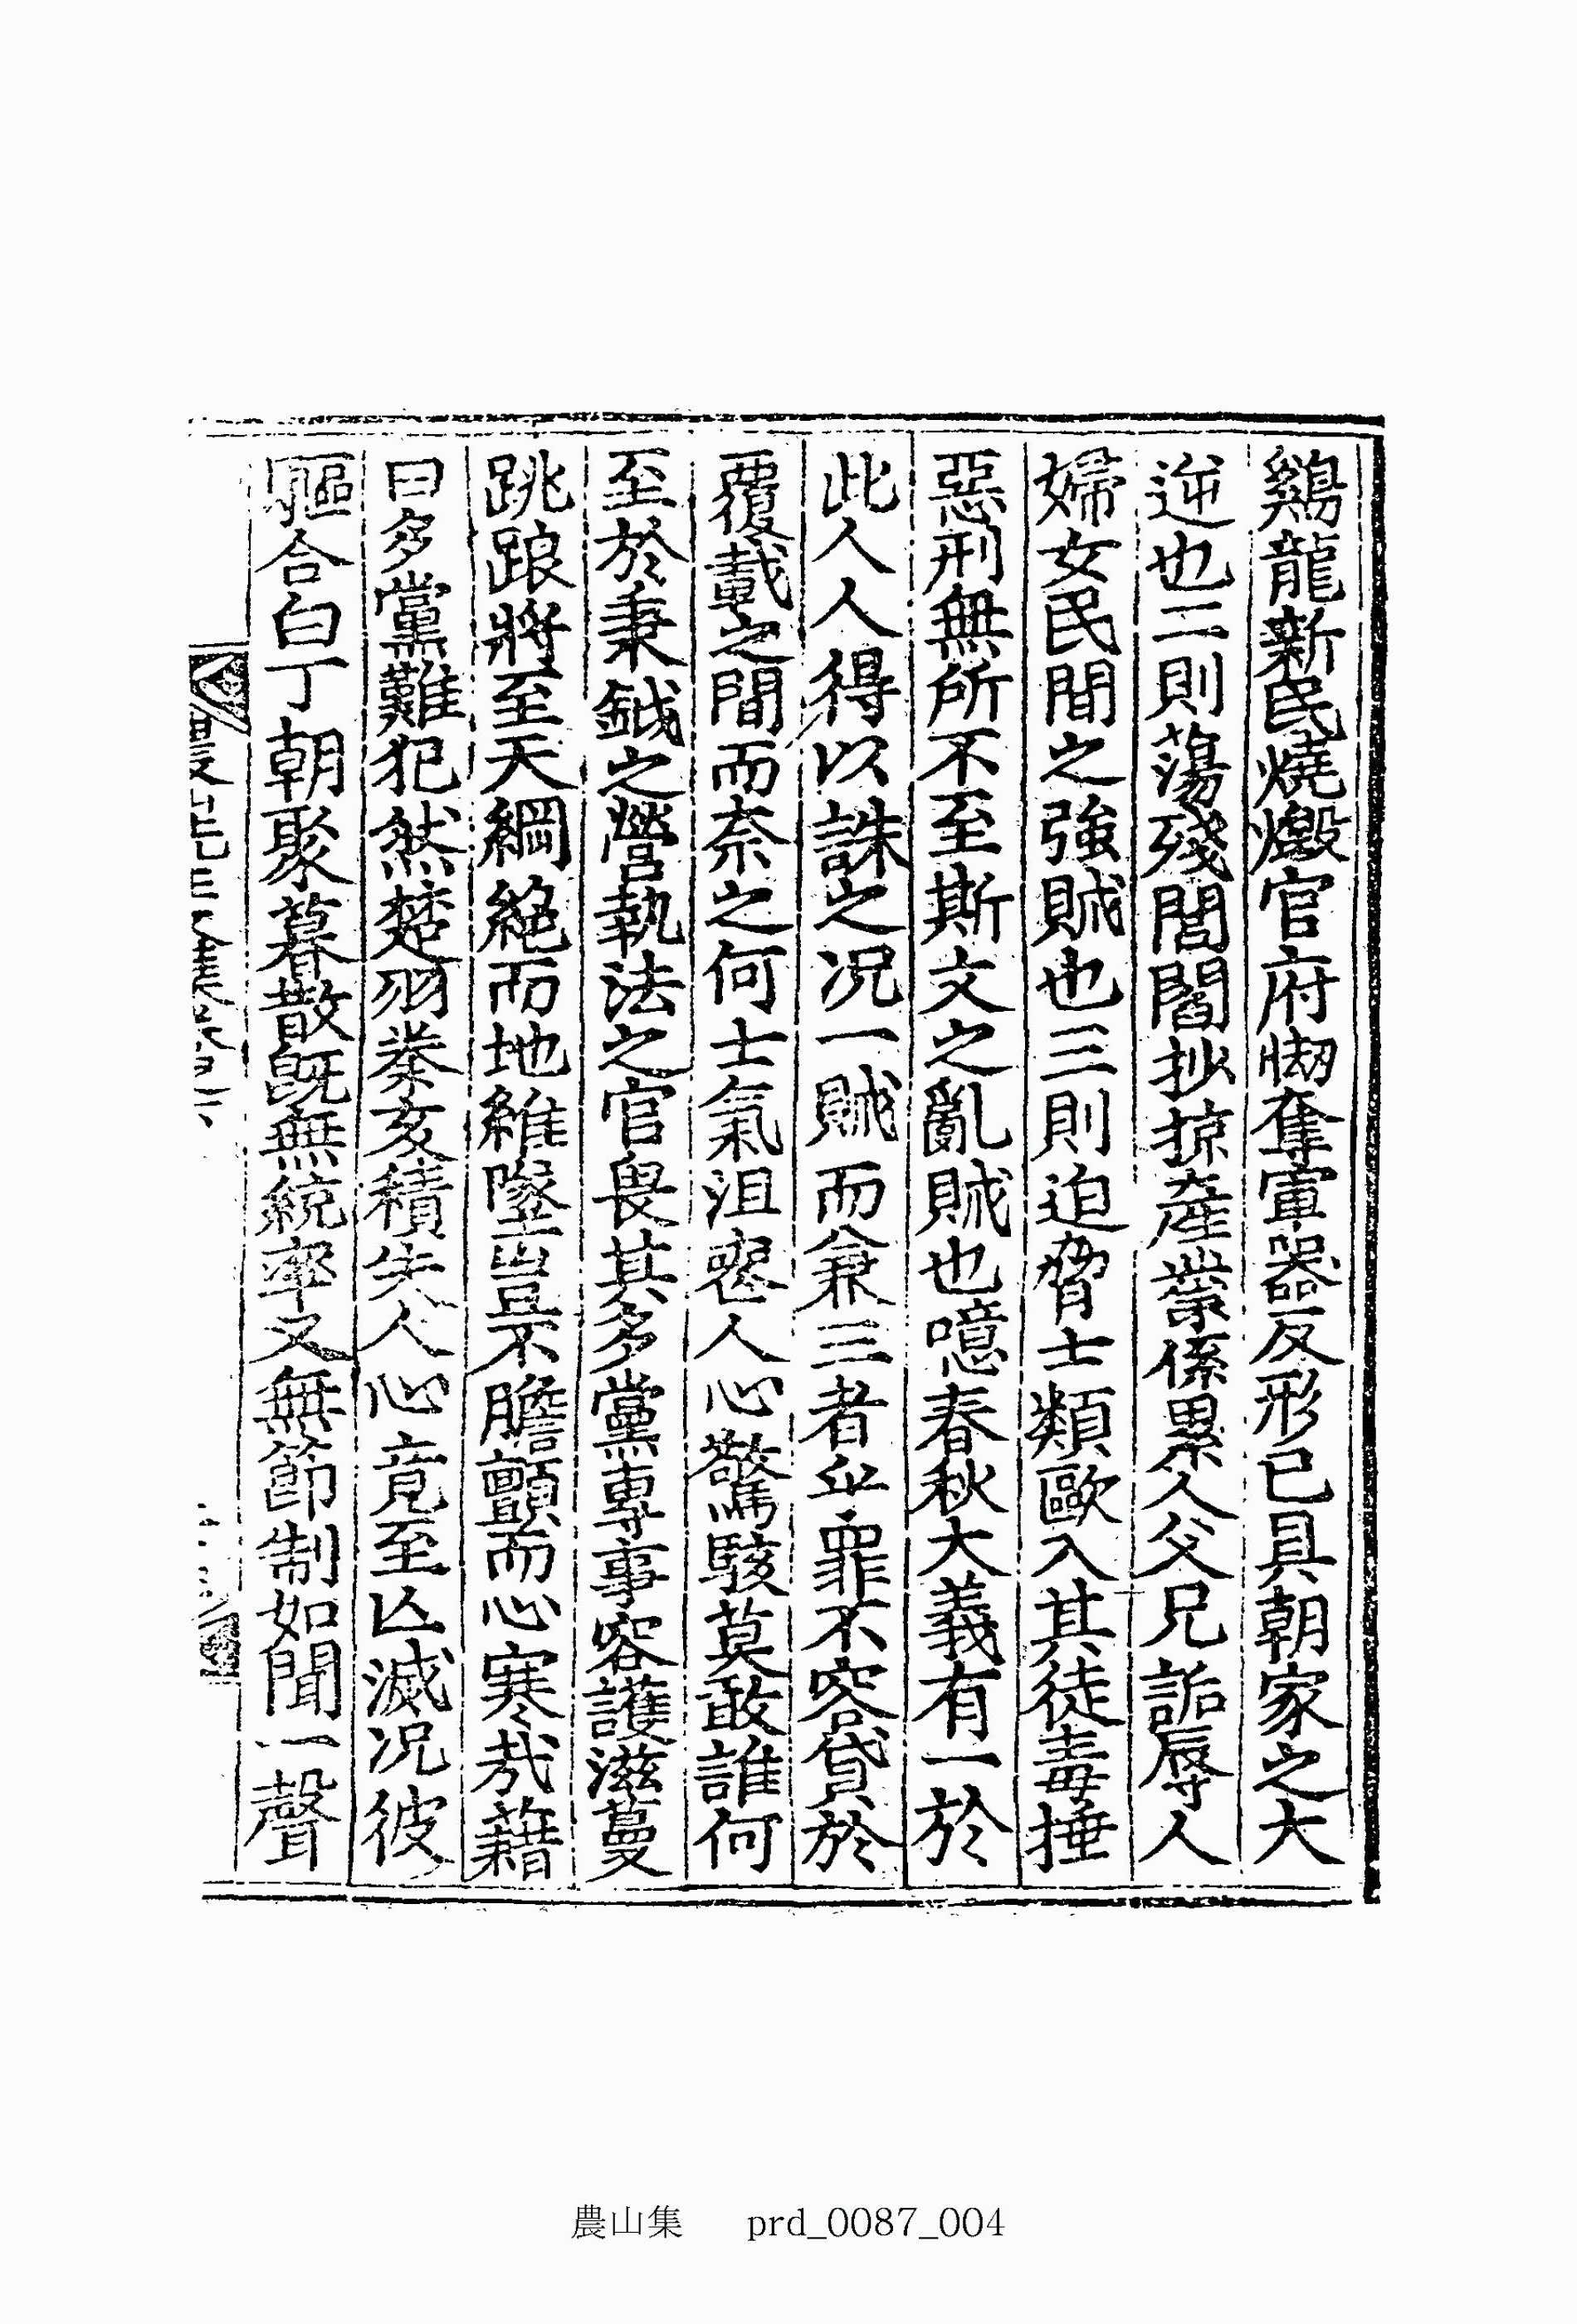 鷄龍新民燒燬官府㥘奪軍器反形已具朝家之大
逆也二則蕩殘閭閻抄掠産業係累人父兄詬辱人
婦女民間之強賊也三則迫脅士類歐入其徒毒捶
惡刑無所不至斯文之亂賊也噫春秋大義有一於
此人人得以誅之况一賊而兼三者乎罪不容貸於
覆載之間而奈之何士氣沮喪人心驚駭莫敢誰何
至於秉鉞之營執法之官畏其多黨專事容護滋蔓
跳踉將至天綱絶而地維墜豈不膽顫而心寒哉藉
曰多黨難犯然楚羽拳亥積失人心竟至亾滅况彼
驅合白丁朝聚暮散旣無統率又無節制如聞一聲
農山先生文集卷之
農山集 prd_0087_004